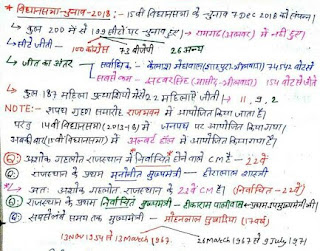 * विधानसभा-चुनाव-2018 :- 15वीं विधानसभा के चुनाव 7 DEC 2018 को संपन्न।
* कुल 200 में से 199 सीटो पर चुनाव हुए। रामगढ़ (अलवर) में नहीं हुए।
* जीते सीटें 100 कांग्रेस 73 बीजेपी 26 अन्य
* जीत का अंतर सर्वाधिक - कैलाश मेघवाल (शाहपुरा-भीलवाड़ा) 74542 वोटों से
सबसे कम - (आसींद-भीलवाड़ा) 154 वोटों से जीते
* कुल 187 महिला प्रत्याशियों में से 22 महिलाएं जीती। 11, 9, 2
NOTE:- शपथ ग्रहण समारोह राजभवन में आयोजित किया जाता है।
परंतु 14वीं विधानसभा (2013-18) में जनपथ पर आयोजित किया गया।
अबकी बार (15वीं विधानसभा) में अल्बर्ट हॉल में आयोजित किया गया है।
अशोक गहलोत राजस्थान में निर्वाचित होने वाले CM है - 22वें
राजस्थान के प्रथम मनोनीत मुख्यमंत्री - हीरालाल शास्त्री
अतः अशोक गहलोत राजस्थान के 22वें CM है। (निर्वाचित - 22वें)
राजस्थान के प्रथम निर्वाचित मुख्यमंत्री - टीकाराम पालीवाल
सबसे लंबे समय तक मुख्यमंत्री - मोहनलाल सुखाड़िया (17 वर्ष)
13 NOV 1954 से 13 March 1967. 26 March 1967 से 9 July 1971